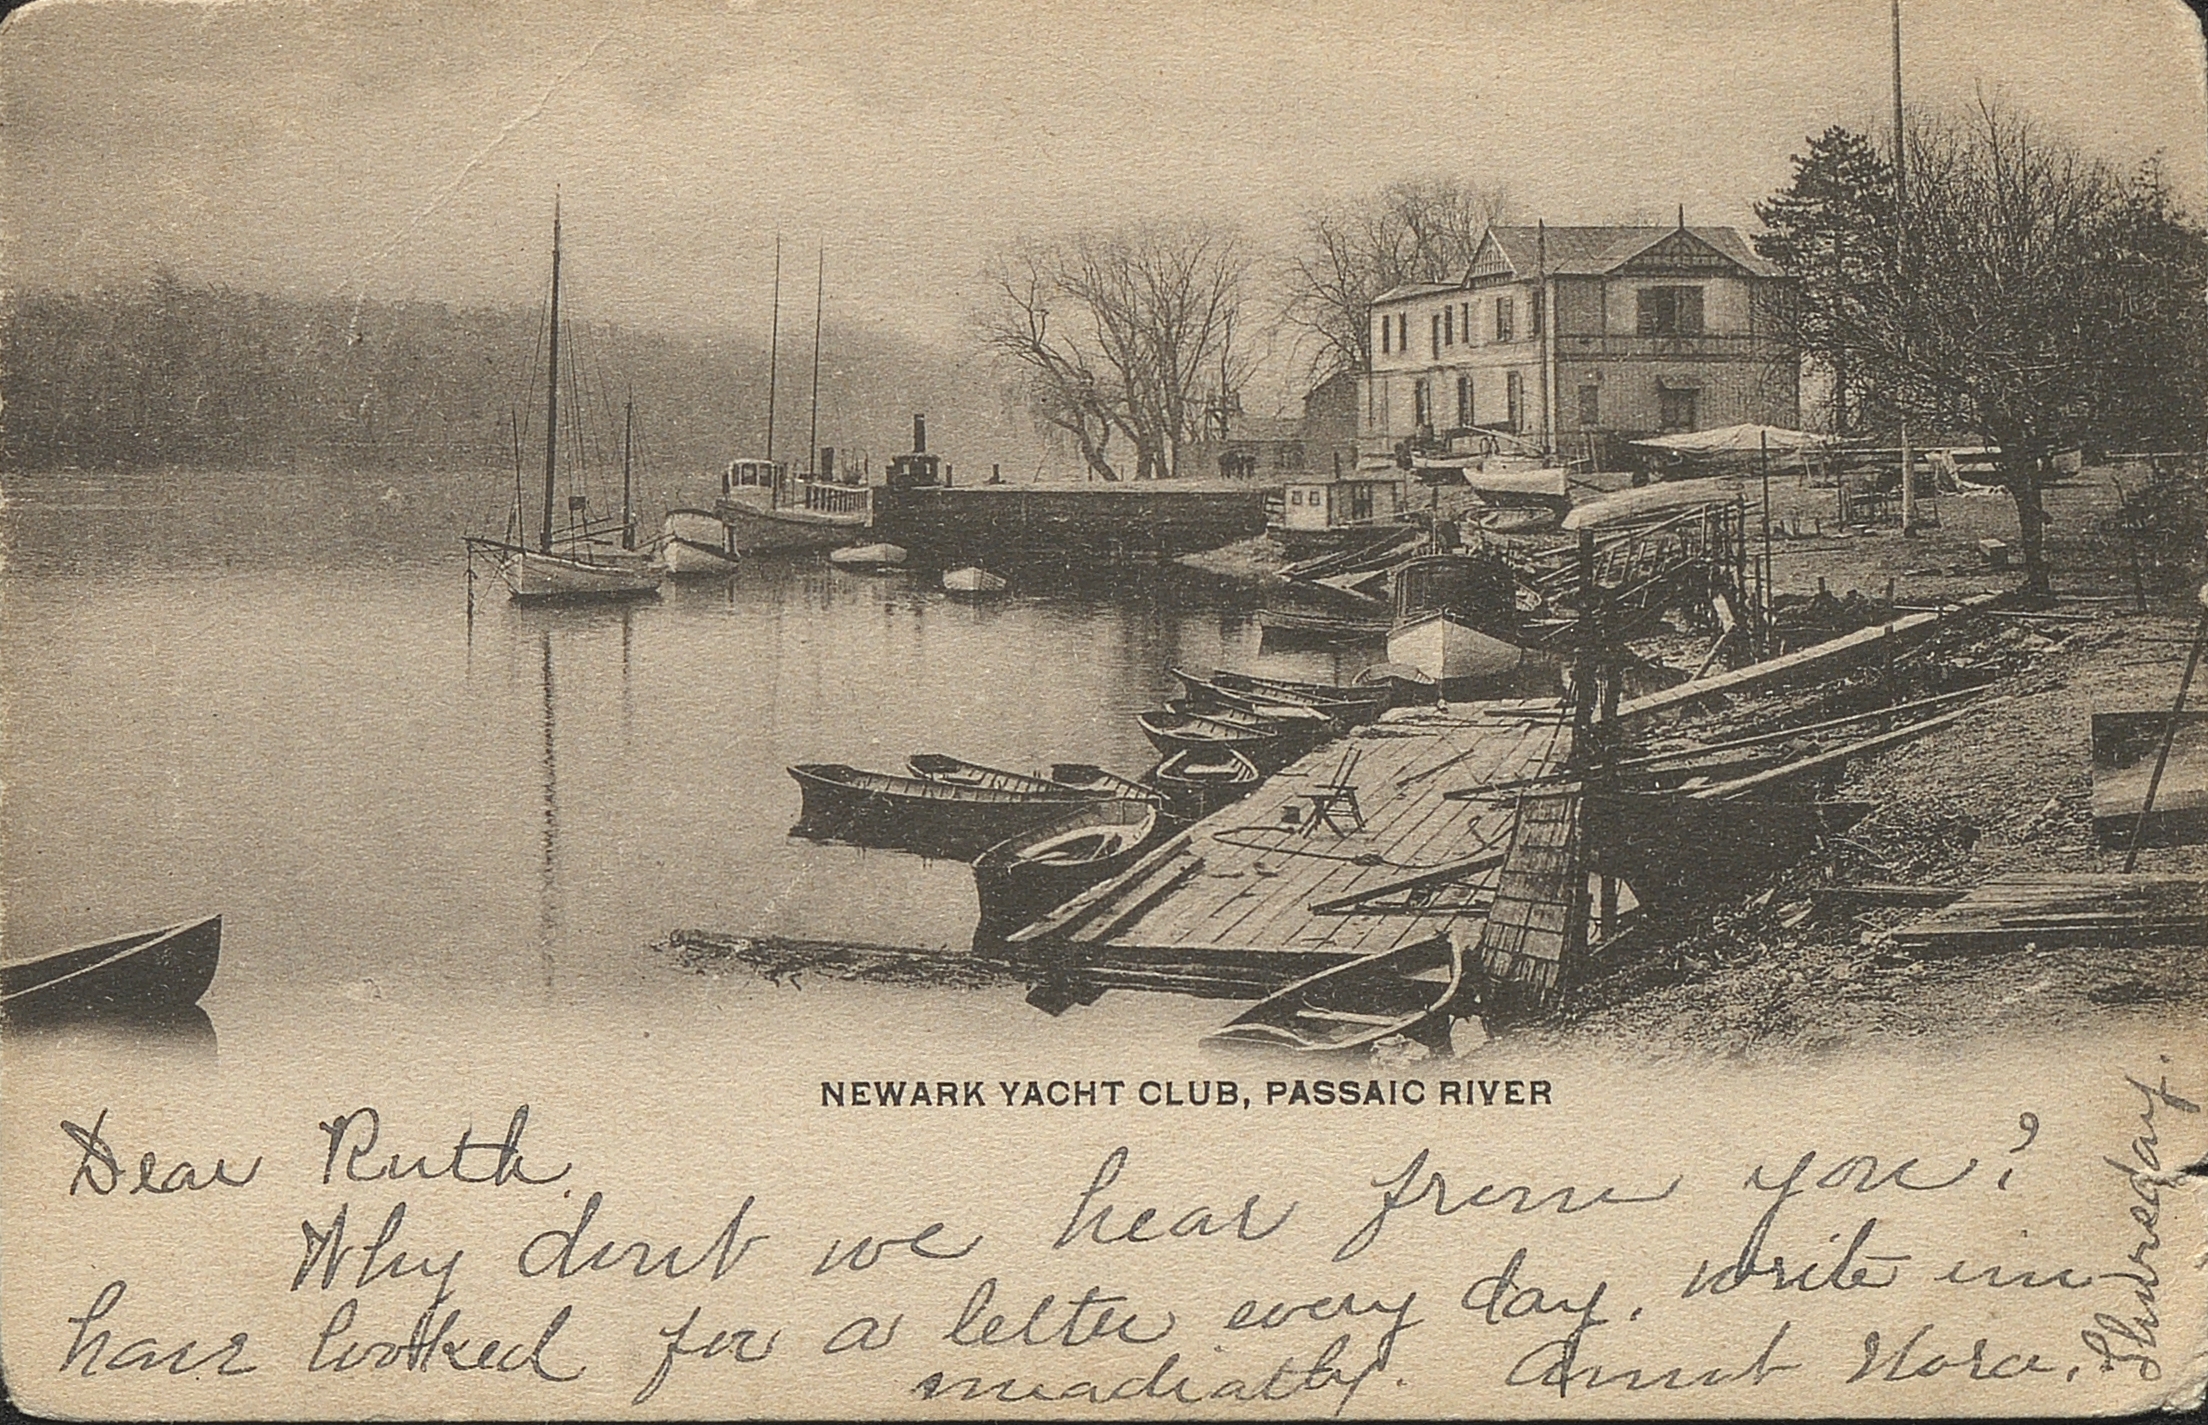 NEWARK YACHT CLUB, PASSAIC RIVER
Dear Ruth.
Why dont we hear from you?
have looked for a letter every day. write im-
meadiatly. Aunt Nora.
Thursday.